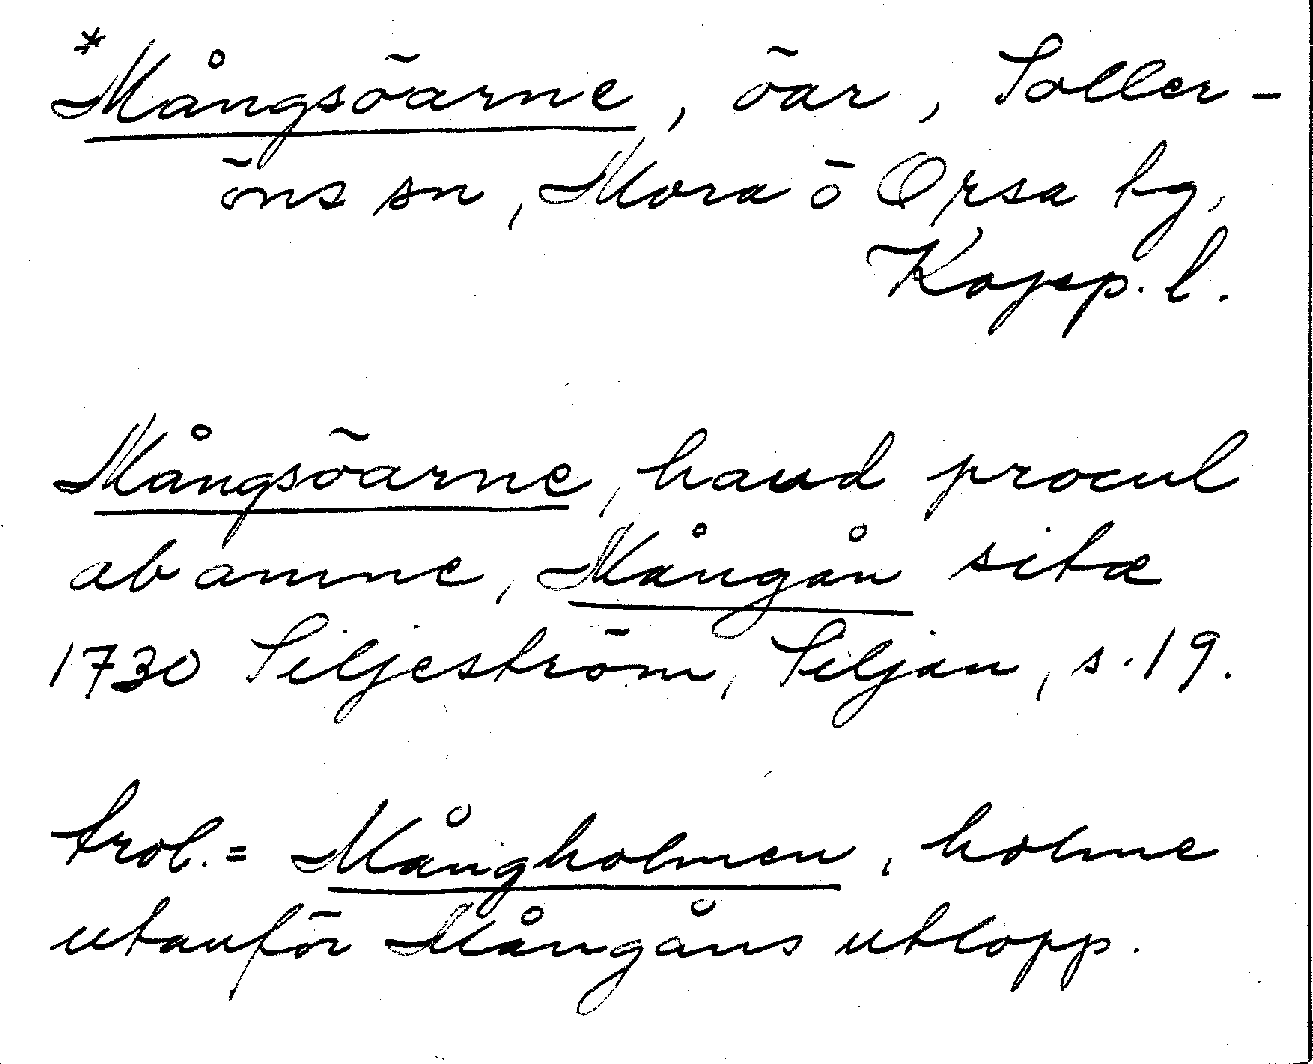 *Mångsöarne, öar, Soller-
öns sn, Mora o Orsa hg,
Kopp. l.
Mångsöarne, haud procul
ab amne, Mångån sitæ
1730 Siljeström, Siljan, s. 19.
trol. = Mångholmen, holme
utanför Mångåns utlopp.